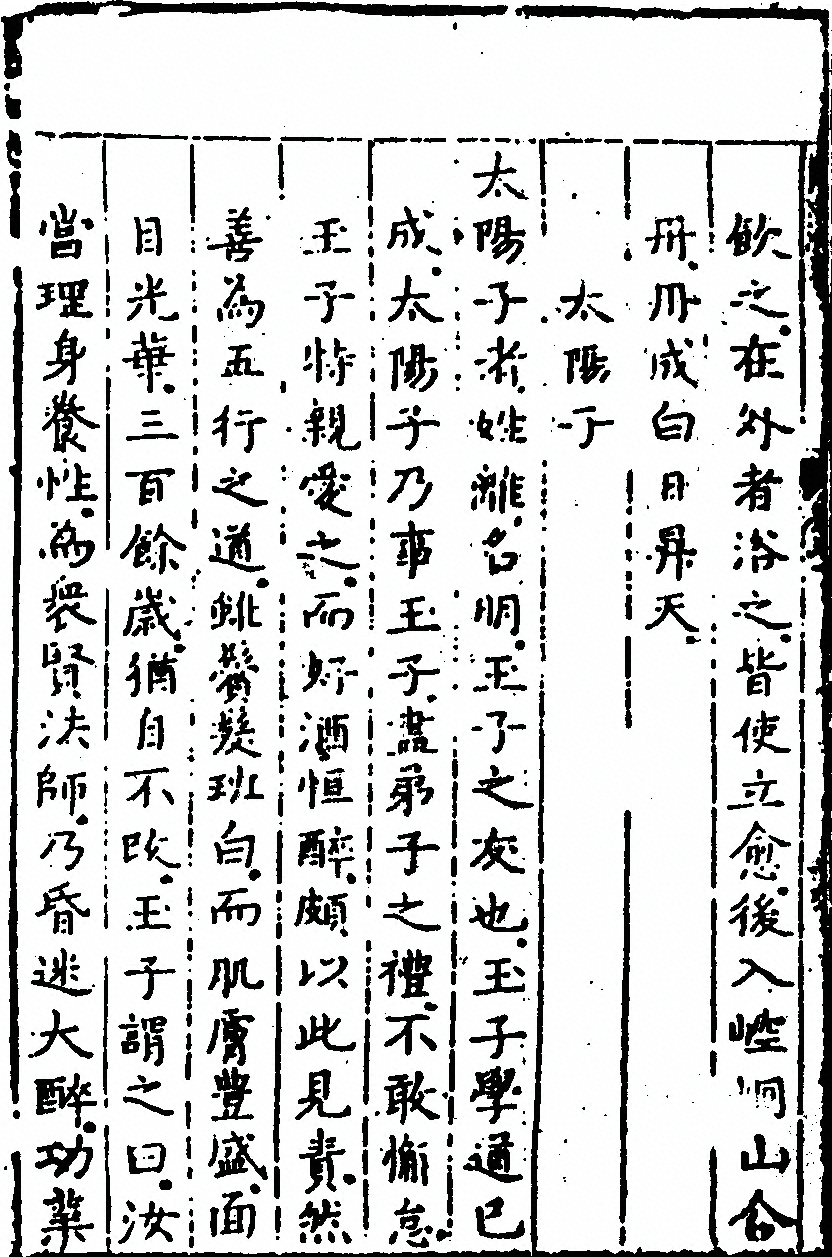 飲之在外者浴之皆使立愈後入崆峒山合
丹丹成白日昇天
太陽子
太陽子者姓離名明玉子之友也玉子學道已
成太陽子乃事玉子盡弟子之禮不敢懈怠
玉子特親愛之而好酒恒醉頗以此見責然
善為五行之道雖鬢髮班白而肌膚豐盛面
目光華三百餘歲猶自不改玉子謂之曰汝
當理身養性為衆賢法師乃昏迷大醉功業